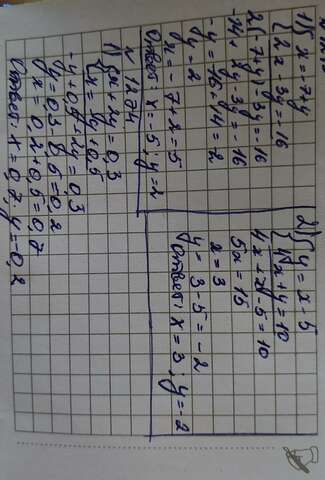 1) { x = -7+y
2x - 3y = -16
2(-7+y) - 3y = -16
-14+2y-3y = -16
-y = -16+14 = 2
y = 2
x = -7+2 = -5
Ответ: x = -5; y = 2
2) { y = x - 5
4x + y = 10
4x + x - 5 = 10
5x = 15
x = 3
y = 3 - 5 = -2
Ответ: x = 3, y = -2
№ 1274.
1)
+2y = 0,3
-y+0,5+2y = 0,3
y = 0,3 - 0,5 = 0,2
x = 0,2+0,5 = 0,7
Ответ: x = 0,7, y = -0,2